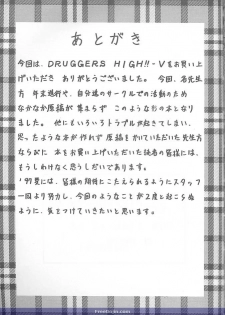 あとがき
今回は、DRUGGERS HIGH!!-Vをお買い上
げいただき ありがとうございました。今回、各先生
方 年末進行や、自分達のサークルでの活動のため
なかなか原稿が集まらず このような形の本となり
ました。他にもいろいろトラブルが起きてしまい、
思ったような本が作れず 原稿をかいていただいた先生方
ならびに 本をお買上げいただいた読者の皆様には、
もうしわけなく思うしだいであります。
'97夏には、皆様の期待にこたえられるようにスタッフ
一同より努力し、今回のようなことが2度と起こらぬ
ように、気をつけていきたいと思います。